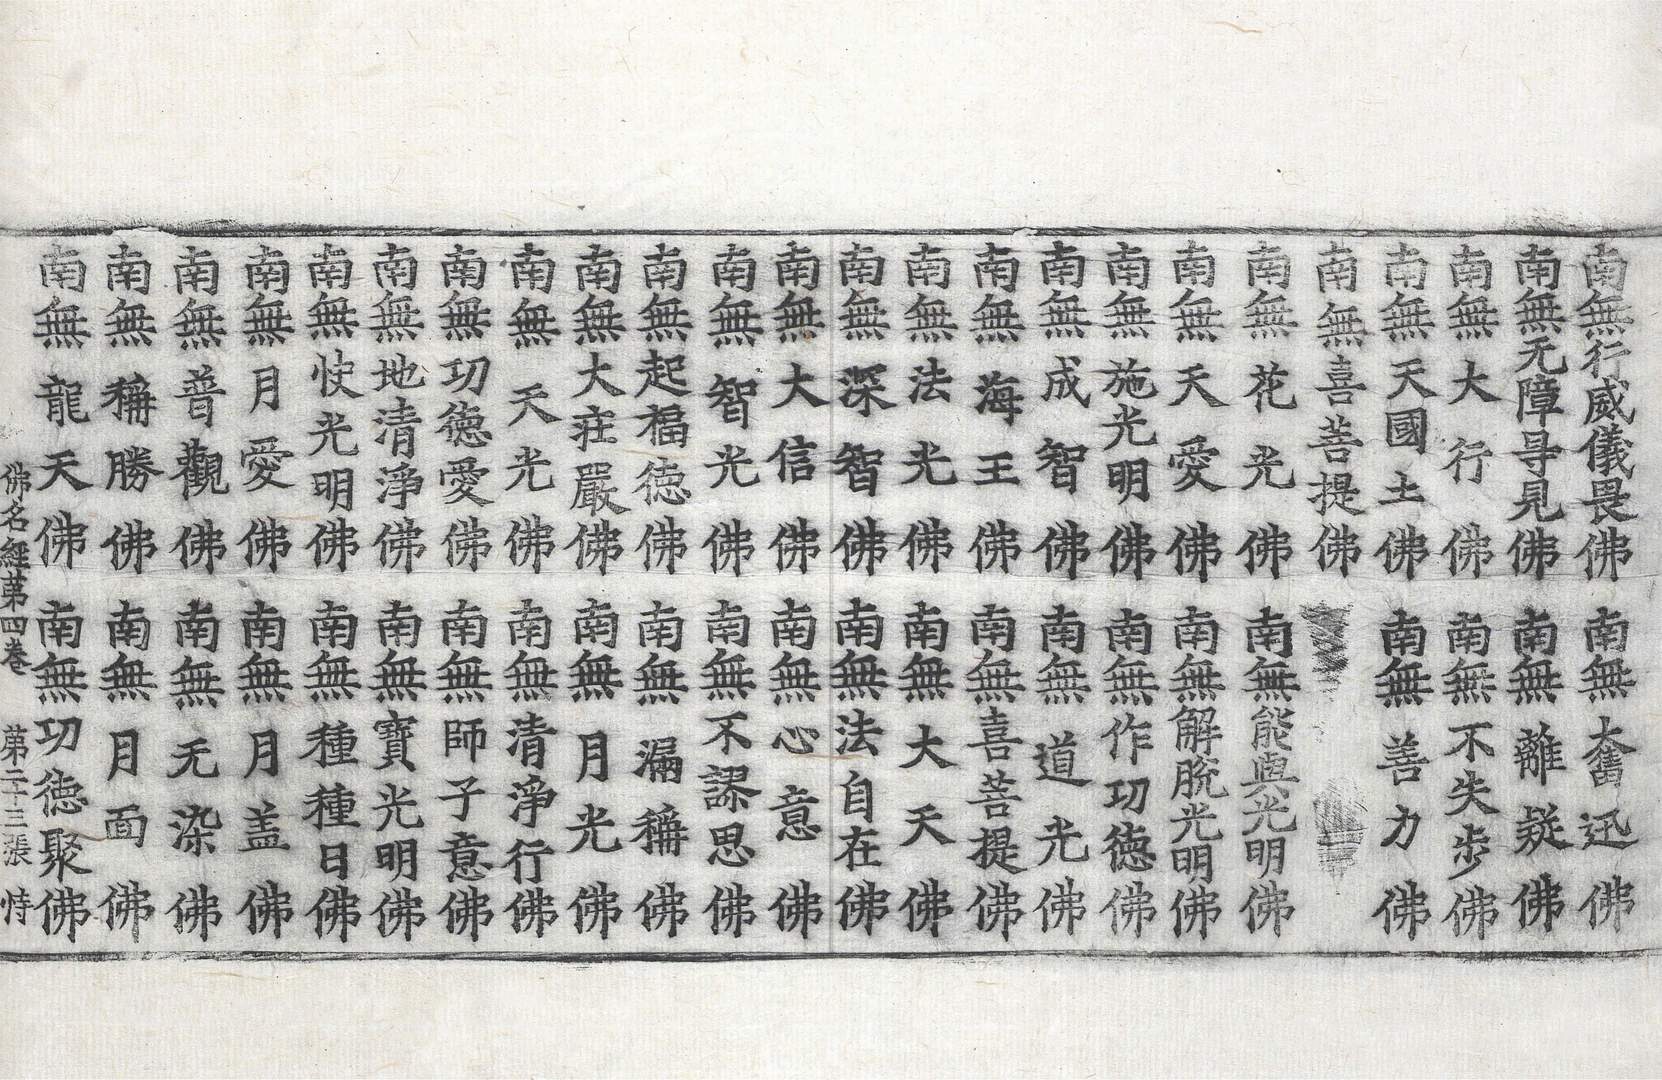 南無行威儀畏佛 南無大奮迅佛
南無无障㝵見佛 南無離疑佛
南無大行佛 南無不失步佛
南無天國土佛 南無善力佛
南無喜菩提佛
南無花光佛 南無能與光明佛
南無天愛佛 南無解脫光明佛
南無施光明佛 南無作功德佛
南無成智佛 南無道光佛
南無海王佛 南無喜菩提佛
南無法光佛 南無大天佛
南無深智佛 南無法自在佛
南無大信佛 南無心意佛
南無智光佛 南無不謬思佛
南無起福德佛 南無漏稱佛
南無大莊嚴佛 南無月光佛
南無天光佛 南無清淨行佛
南無功德愛佛 南無師子意佛
南無地清淨佛 南無寶光明佛
南無快光明佛 南無種種日佛
南無月愛佛 南無月盖佛
南無普觀佛 南無无染佛
南無稱勝佛 南無月面佛
南無龍天佛 南無功德聚佛
佛名經第四卷 第二十三張 恃